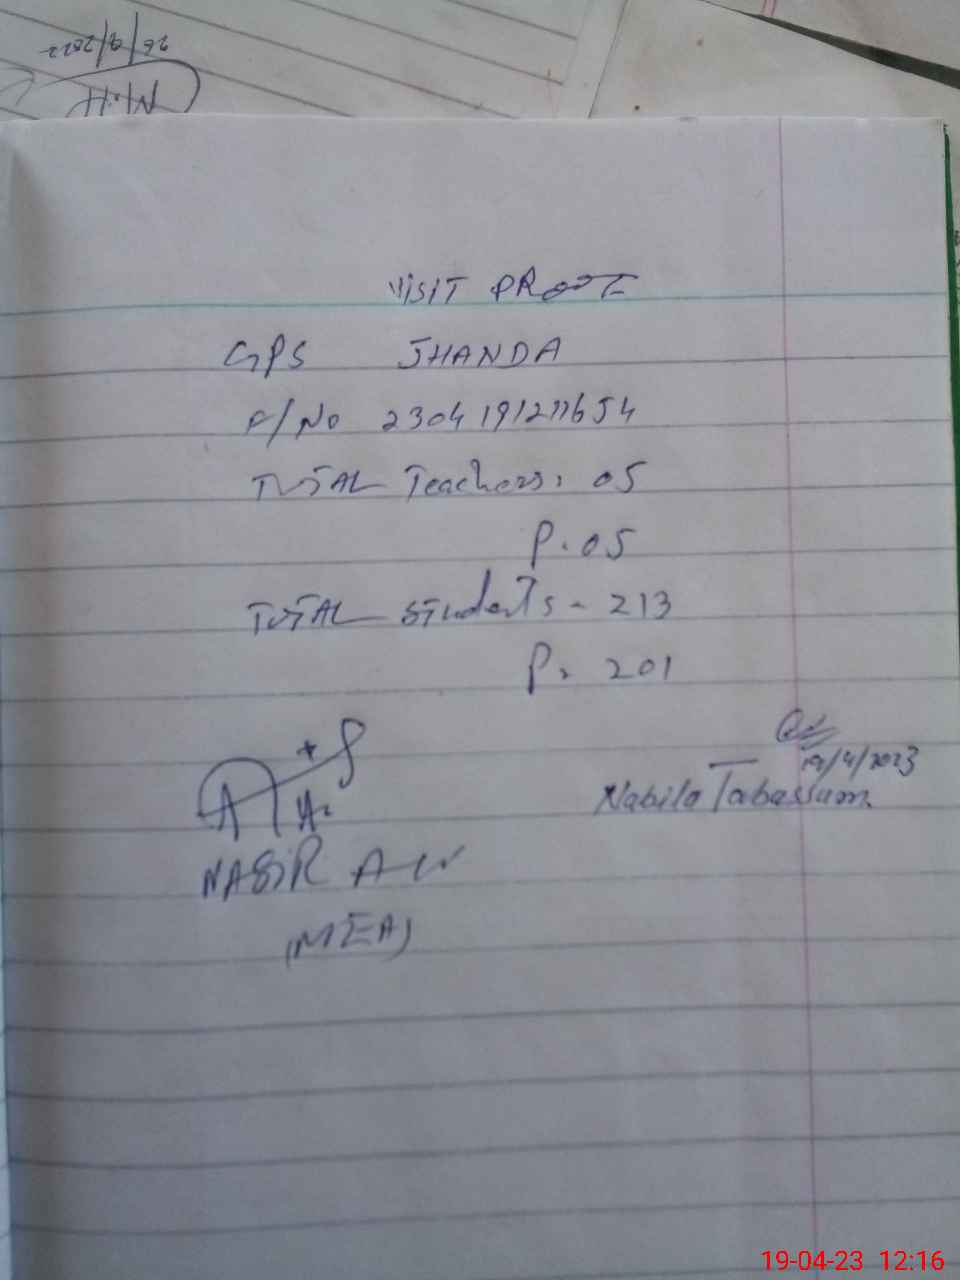 26/9/2022
VISIT PROOF
GPS JHANDA
F/No 2304191211654
TOTAL Teachers: 05
P. 05
TOTAL Students - 213
P. 201
19/4/2023
Nabila Tabassum
NASIR
(MEA)
19-04-23 12:16